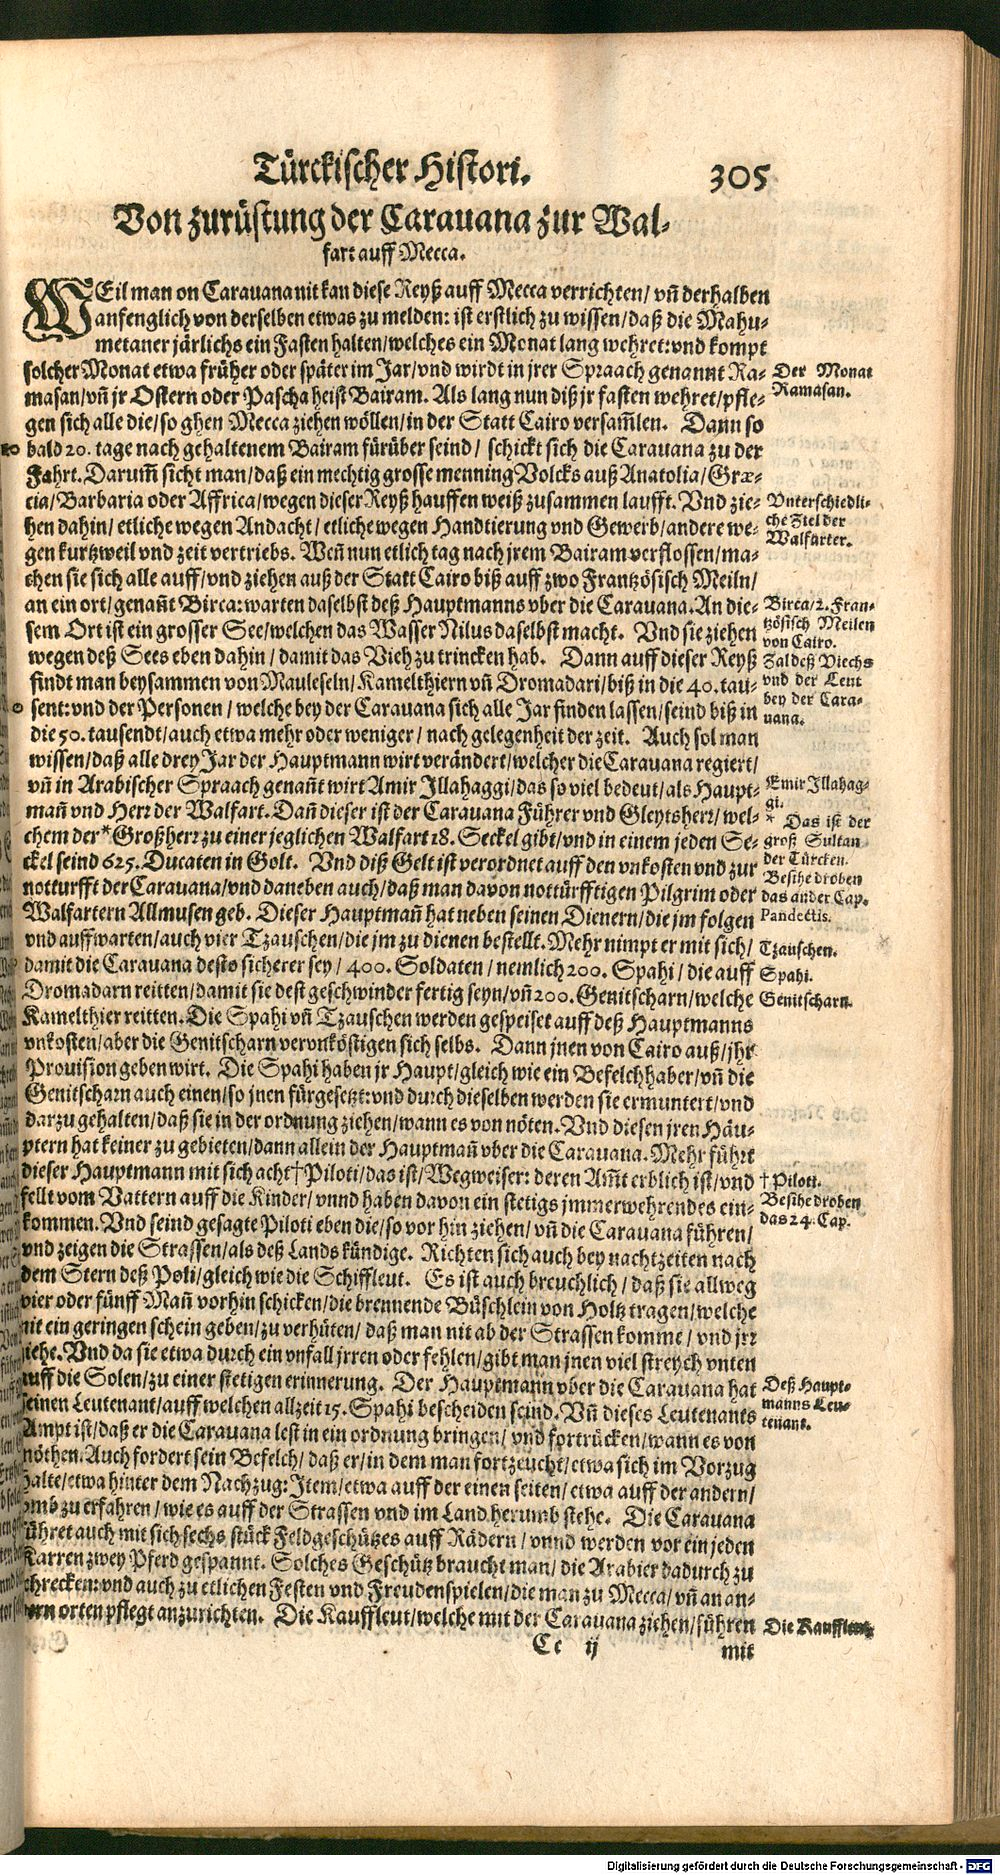 Türckischer Histori. 305
Von zurüstung der Carauana zur Wal-
fart auff Mecca.
WEil man on Carauana nit kan diese Reyß auff Mecca verrichten/ vñ derhalben
anfenglich von derselben etwas zu melden: ist erstlich zu wissen/ daß die Mahu-
metaner järlichs ein Fasten halten/ welches ein Monat lang wehret: vnd kompt
solcher Monat etwa früher oder später im Jar/ vnd wirdt in jrer Spraach genannt Ra-
masan/ vñ jr Ostern oder Pascha heist Bairam. Als lang nun diß jr fasten wehret/ pfle-
gen sich alle die/ so ghen Mecca ziehen wöllen/ in der Statt Cairo versam̃len. Dann so
bald 20. tage nach gehaltenem Bairam fürüber seind/ schickt sich die Carauana zu der
Fahrt. Darum̃ sicht man/ daß ein mechtig grosse menning Volcks auß Anatolia/ Græ-
cia/ Barbaria oder Affrica/ wegen dieser Reyß hauffen weiß zusammen laufft. Vnd zie-
hen dahin/ etliche wegen Andacht/ etliche wegen Handtierung vnd Gewerb/ andere we-
gen kurtzweil vnd zeit vertriebs. Weñ nun etlich tag nach jrem Bairam verflossen/ ma-
chen sie sich alle auff/ vnd ziehen auß der Statt Cairo biß auff zwo Frantzösisch Meiln/
an ein ort/ genañt Birca: warten daselbst deß Hauptmanns vber die Carauana. An die-
sem Ort ist ein grosser See/ welchen das Wasser Nilus daselbst macht. Vnd sie ziehen
wegen deß Sees eben dahin/ damit das Vieh zu trincken hab. Dann auff dieser Reyß
findt man beysammen von Mauleseln/ Kamelthiern vñ Dromadari/ biß in die 40. tau-
sent: vnd der Personen/ welche bey der Carauana sich alle Jar finden lassen/ seind biß in
die 50. tausendt/ auch etwa mehr oder weniger/ nach gelegenheit der zeit. Auch sol man
wissen/ daß alle drey Jar der Hauptmann wirt verändert/ welcher die Carauana regiert/
vñ in Arabischer Spraach genañt wirt Amir Illahaggi/ das so viel bedeut/ als Haupt-
mañ vnd Herr der Walfart. Dañ dieser ist der Carauana Führer vnd Gleytsherr/ wel-
chem der *Großherr zu einer jeglichen Walfart 18. Seckel gibt/ vnd in einem jeden Se-
ckel seind 625. Ducaten in Golt. Vnd diß Gelt ist verordnet auff den vnkosten vnd zur
notturfft der Carauana/ vnd daneben auch/ daß man davon nottürfftigen Pilgrim oder
Walfartern Allmusen geb. Dieser Hauptmañ hat neben seinen Dienern/ die jm folgen
vnd auffwarten/ auch vier Tzauschen/ die jm zu dienen bestellt. Mehr nimpt er mit sich/
damit die Carauana desto sicherer sey/ 400. Soldaten/ nemlich 200. Spahi/ die auff
Dromadarn reitten/ damit sie dest geschwinder fertig seyn/ vñ 200. Genitscharn/ welche
Kamelthier reitten. Die Spahi vñ Tzauschen werden gespeiset auff deß Hauptmanns
vnkosten/ aber die Genitscharn vervnköstigen sich selbs. Dann jnen von Cairo auß/ jhr
Provision geben wirt. Die Spahi haben jr Haupt/ gleich wie ein Befelchhaber/ vñ die
Genitscharn auch einen/ so jnen fürgesetzt: vnd durch dieselben werden sie ermuntert/ vnd
darzu gehalten/ daß sie in der ordnung ziehen/ wann es von nöten. Vnd diesen jren Häu-
ptern hat keiner zu gebieten/ dann allein der Hauptmañ vber die Carauana. Mehr führt
dieser Hauptmann mit sich acht †Piloti/ das ist/ Wegweiser: deren Am̃t erblich ist/ vnd
fellt vom Vattern auff die Kinder/ vnnd haben davon ein stetigs jmmerwehrendes ein-
kommen. Vnd seind gesagte Piloti eben die/ so vor hin ziehen/ vñ die Carauana führen/
vnd zeigen die Strassen/ als deß Lands kündige. Richten sich auch bey nachtzeiten nach
dem Stern deß Poli/ gleich wie die Schiffleut. Es ist auch breuchlich/ daß sie allweg
vier oder fünff Mañ vorhin schicken/ die brennende Büschlein von Holtz tragen/ welche
nit ein geringen schein geben/ zu verhüten/ daß man nit ab der Strassen komme/ vnd jrr
ziehe. Vnd da sie etwa durch ein vnfall jrren oder fehlen/ gibt man jnen viel streych vnten
auff die Solen/ zu einer stetigen erinnerung. Der Hauptmann vber die Carauana hat
seinen Leutenant/ auff welchen allzeit 15. Spahi bescheiden seind. Vñ dieses Leutenants
Ampt ist/ daß er die Carauana lest in ein ordnung bringen/ vnd fortrücken/ wann es von
nöthen. Auch fordert sein Befelch/ daß er/ in dem man fortzeucht/ etwa sich im Vorzug
halte/ etwa hinter dem Nachzug: Item/ etwa auff der einen seiten/ etwa auff der andern/
vmb zu erfahren/ wie es auff der Strassen vnd im Land herumb stehe. Die Carauana
führet auch mit sich sechs stück Feldgeschützes auff Rädern/ vnnd werden vor ein jeden
Karren zwey Pferd gespannt. Solches Geschütz braucht man/ die Arabier dadurch zu
schrecken: vnd auch zu etlichen Festen vnd Freudenspielen/ die man zu Mecca/ vñ an an-
dern orten pflegt anzurichten. Die Kauffleut/ welche mit der Carauana ziehen/ führen
Cc ij mit
Der Monat
Ramasan.
Vnterschiedli-
che Ziel der
Walfarter.
Birca/ 2. Fran-
tzösisch Meilen
von Cairo.
Zal deß Viechs
vnd der Leut
bey der Cara-
uana.
Emir Illahag-
gi.
* Das ist der
groß Sultan
der Türcken.
Besihe droben
das ander Cap.
Pandectis.
Tzauschen.
Spahi.
Genitscharn.
† Piloti.
Besihe droben
das 24. Cap.
Deß Haupt-
manns Leu-
tenant.
Die Kauffleut
Digitalisierung gefördert durch die Deutsche Forschungsgemeinschaft - DFG